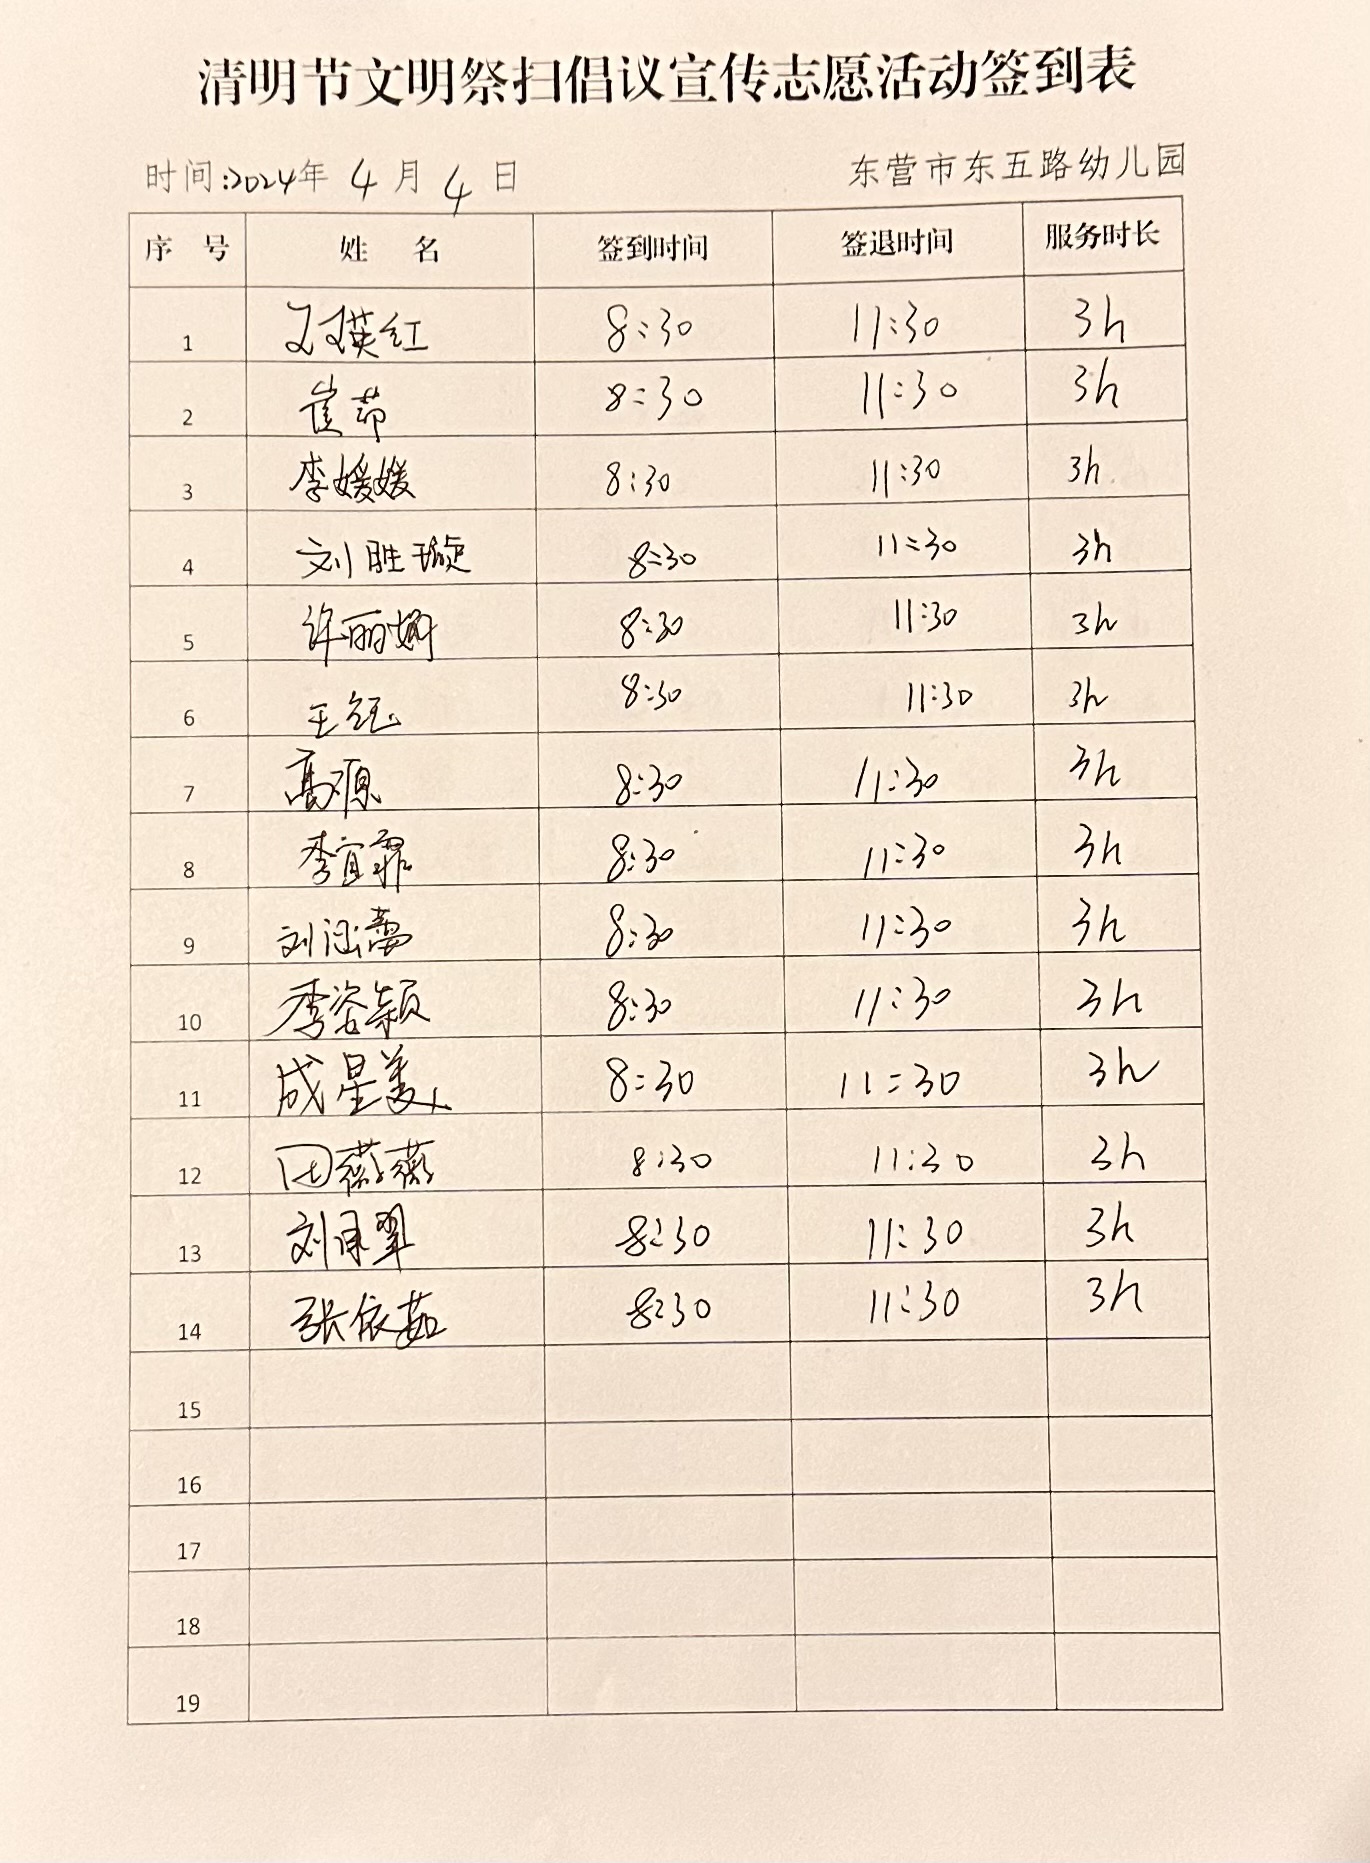 清明节文明祭扫倡议宣传志愿活动签到表
时间:2024年 4 月 4 日 东营市东五路幼儿园
序 号 姓 名 签到时间 签退时间 服务时长
1 王瑛红 8:30 11:30 3h
2 崔茹 8:30 11:30 3h
3 李媛媛 8:30 11:30 3h
4 刘胜璇 8:30 11:30 3h
5 许丽娜 8:30 11:30 3h
6 王钰 8:30 11:30 3h
7 高源 8:30 11:30 3h
8 李宜霏 8:30 11:30 3h
9 刘涵蕾 8:30 11:30 3h
10 李姿颖 8:30 11:30 3h
11 成星美 8:30 11:30 3h
12 田薇薇 8:30 11:30 3h
13 刘月翠 8:30 11:30 3h
14 张依茹 8:30 11:30 3h
15
16
17
18
19